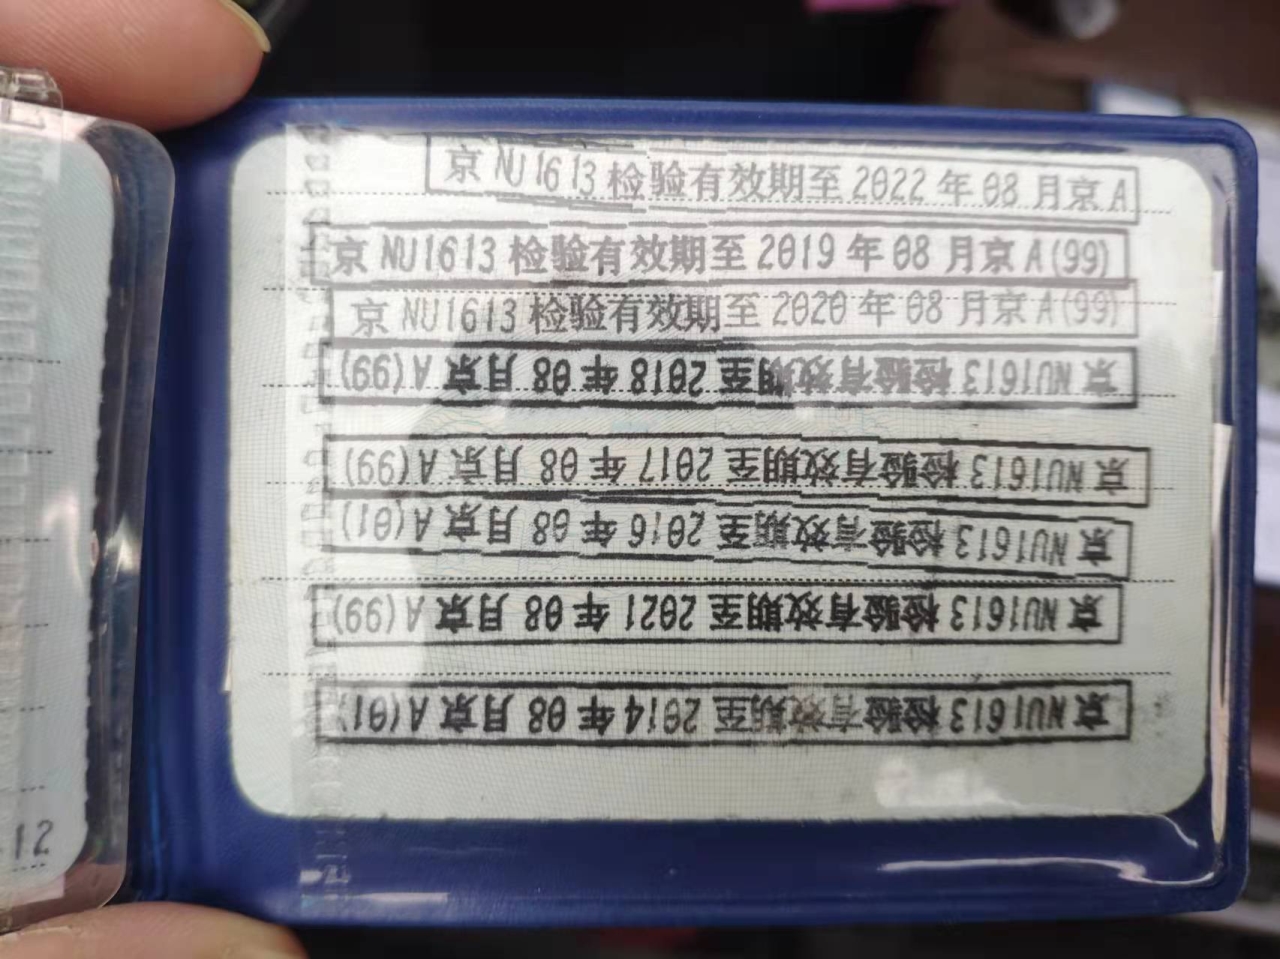 京 NU1613 检验有效期至 2022 年 08 月京 A
京 NU1613 检验有效期至 2019 年 08 月京 A(99)
京 NU1613 检验有效期至 2020 年 08 月京 A(99)
京 NU1613 检验有效期至 2018 年 08 月京 A(99)
京 NU1613 检验有效期至 2017 年 08 月京 A(99)
京 NU1613 检验有效期至 2016 年 08 月京 A(01)
京 NU1613 检验有效期至 2021 年 08 月京 A(99)
京 NU1613 检验有效期至 2014 年 08 月京 A(01)
12